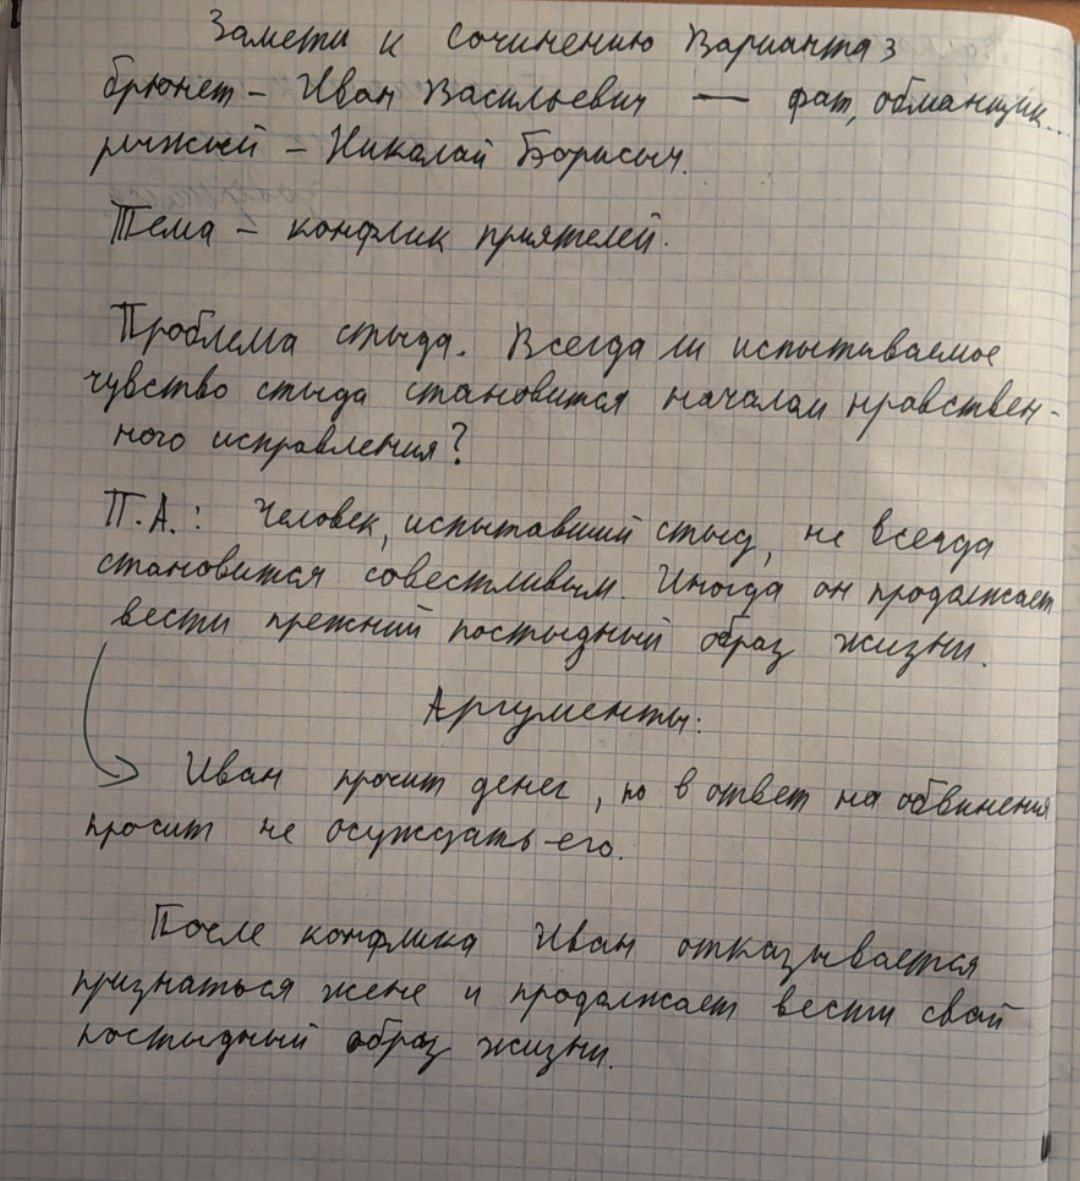 Замети к сочинению Варианта 3
брюнет – Иван Васильевич — фат, обманщик...
рыжый – Николай Борисыч.
Тема – конфлик приятелей.
Проблема стыда. Всегда ли испытываемое
чувство стыда становится началом нравствен-
ного исправления?
П.А.: Человек, испытавший стыд, не всегда
становится совестливым. Иногда он продолжает
вести прежний постыдный образ жизни.
Аргументы:
Иван просит денег, но в ответ на обвинения
просит не осуждать его.
После конфлика Иван отказывается
признаться жене и продолжает вести свой
постыдный образ жизни.